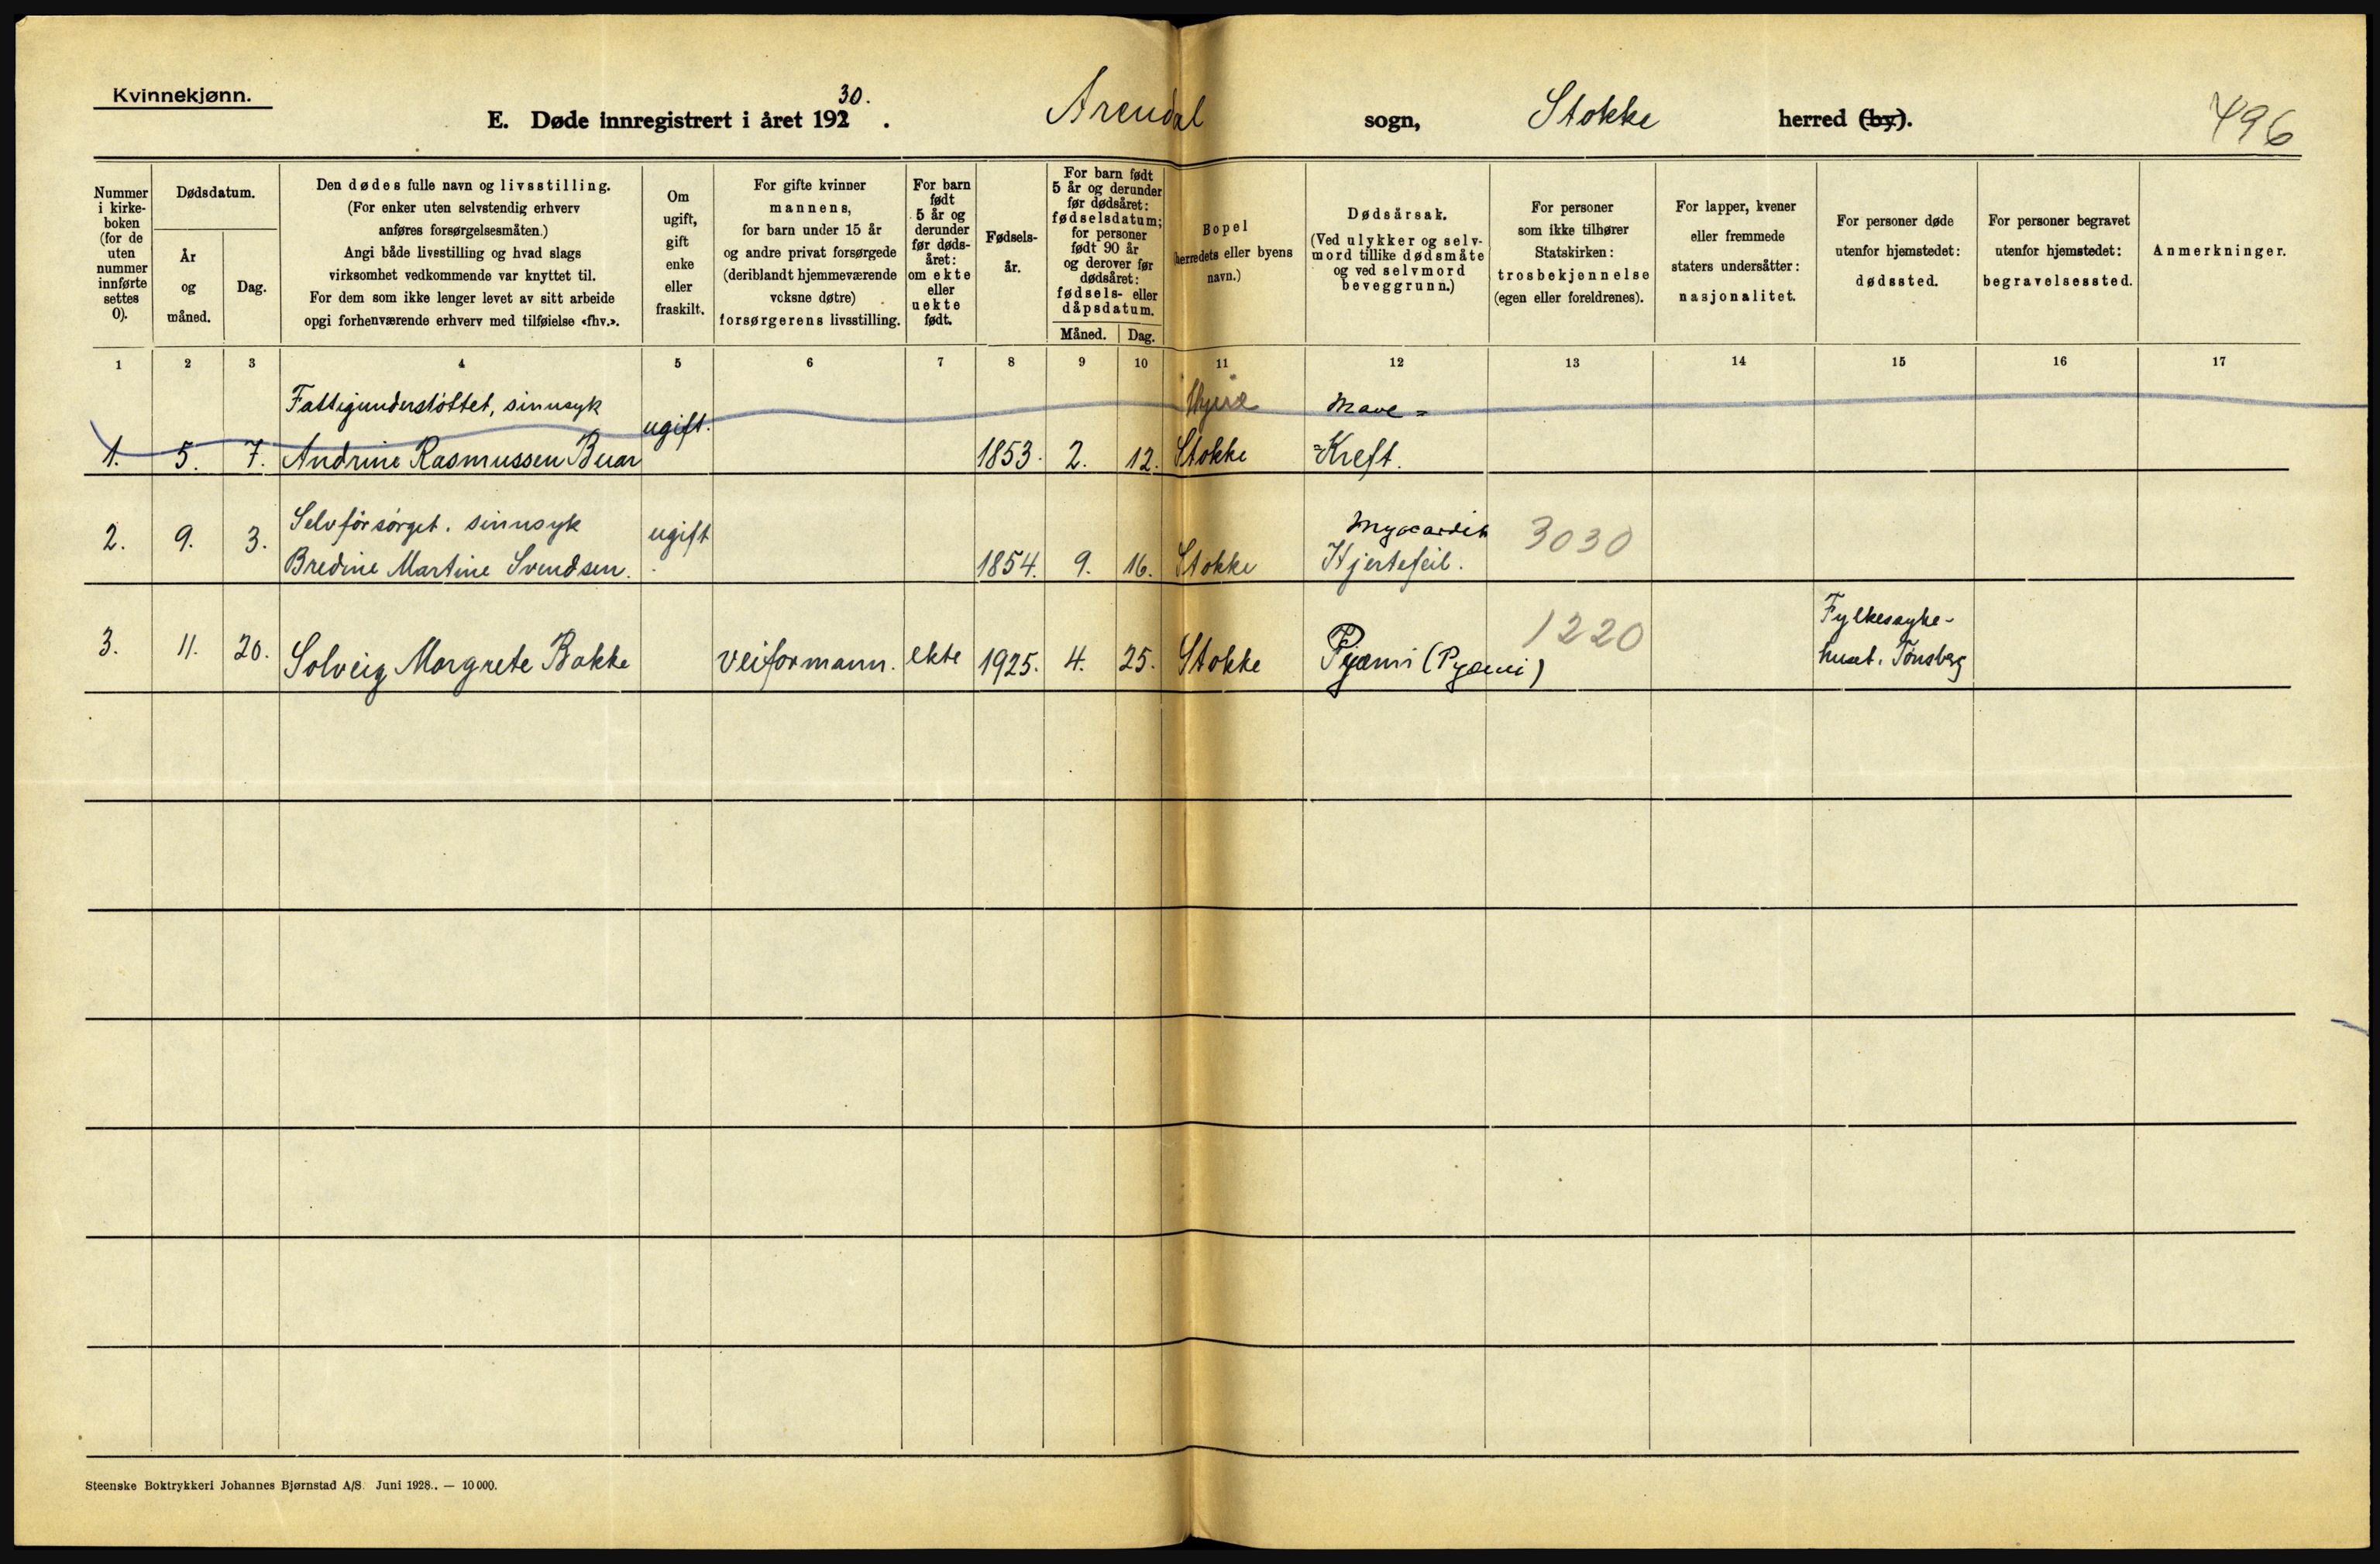 Kvinnekjønn.
E. Døde innregistrert i året 192 30. Arendal sogn, Stokke herred (by).
496
Nummer i kirke-boken (for de uten nummer innførte settes 0).
Dødsdatum.
År og måned.
Dag.
Den dødes fulle navn og livsstilling.
(For enker uten selvstendig erhverv
anføres forsørgelsesmåten.)
Angi både livsstilling og hvad slags
virksomhet vedkommende var knyttet til.
For dem som ikke lenger levet av sitt arbeide
opgi forhenværende erhverv med tilføielse «fhv.».
Om
ugift,
gift
enke
eller
fraskilt.
For gifte kvinner
mannens,
for barn under 15 år
og andre privat forsørgede
(deriblandt hjemmeværende
voksne døtre)
forsørgerens livsstilling.
For barn
født
5 år og
derunder
før døds-
året:
om ekte
eller
uekte
født.
Fødsels-
år.
For barn født
5 år og derunder
før dødsåret:
fødselsdatum;
for personer
født 90 år
og derover før
dødsåret:
fødsels- eller
dåpsdatum.
Måned.
Dag.
Bopel
(herredets eller byens
navn.)
Dødsårsak.
(Ved ulykker og selv-
mord tillike dødsmåte
og ved selvmord
beveggrunn.)
For personer
som ikke tilhører
Statskirken:
trosbekjennelse
(egen eller foreldrenes).
For lapper, kvener
eller fremmede
staters undersåtter:
nasjonalitet.
For personer døde
utenfor hjemstedet:
dødssted.
For personer begravet
utenfor hjemstedet:
begravelsessted.
Anmerkninger.
1 2 3 4 5 6 7 8 9 10 11 12 13 14 15 16 17
Fattigunderstøttet, sinnsyk Mave =
1. 5. 7. Andrine Rasmussen Buar ugift. 1853. 2. 12. Stokke =Kreft.
Selvforsørget. sinnsyk Myocardit 3030
2. 9. 3. Bredine Martine Svendsen. ugift 1854. 9. 16. Stokke Hjertefeil.
1220 Fylkessyke-
3. 11. 20. Solveig Margrete Bakke veiformann. ekte 1925. 4. 25. Stokke Pyæmi (Pyæmi) huset. Tønsberg
Steenske Boktrykkeri Johannes Bjørnstad A/S. Juni 1928.. — 10 000.